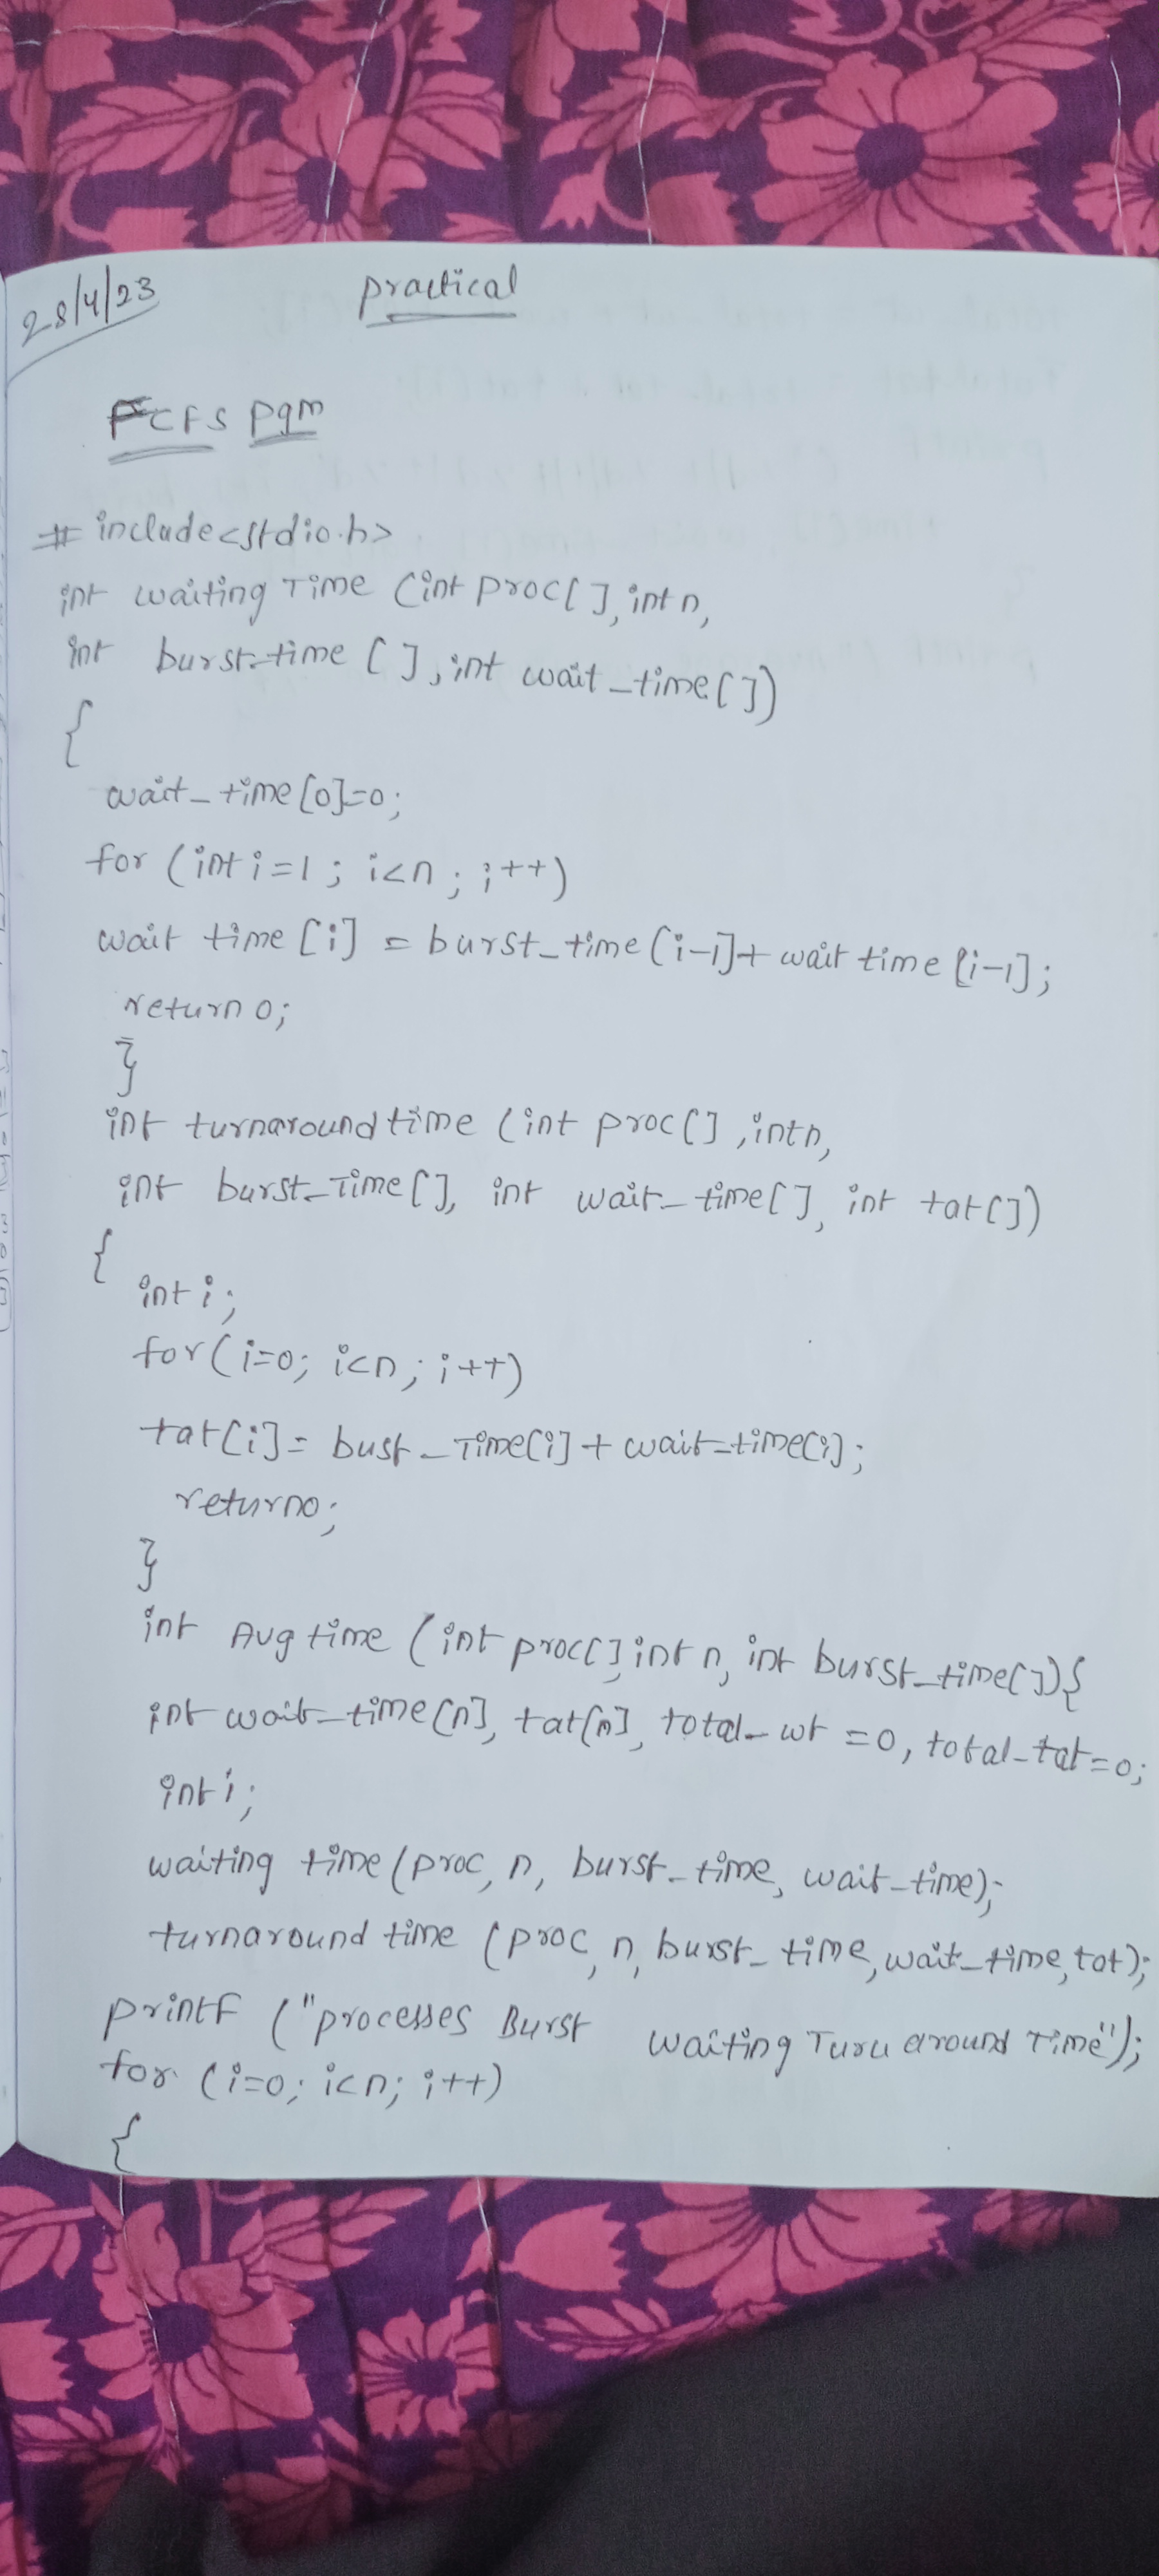 28/4/23
practical
FCFS pgm
# include<stdio.h>
int waiting Time (int proc[], int n,
int burst-time [], int wait_time[])
{
wait_ time [0]=0;
for (int i=1; i<n; i++)
wait time [i] = burst_time [i-1]+ wait time [i-1];
return 0;
}
int turnaround time (int proc[], int n,
int burst_Time[], int wait_time[], int tat[])
{
int i;
for(i=0; i<n; i++)
tat[i]= bust_Time[i] + wait_time[i];
return 0;
}
int Avg time (int proc[], int n, int burst_time[]){
int wait_time[n], tat[n], total_wt =0, total_tat=0;
int i;
waiting time (proc, n, burst_time, wait_time);
turnaround time (proc, n, burst_time, wait_time, tat);
printf ("processes Burst waiting Turu around Time");
for (i=0; i<n; i++)
{